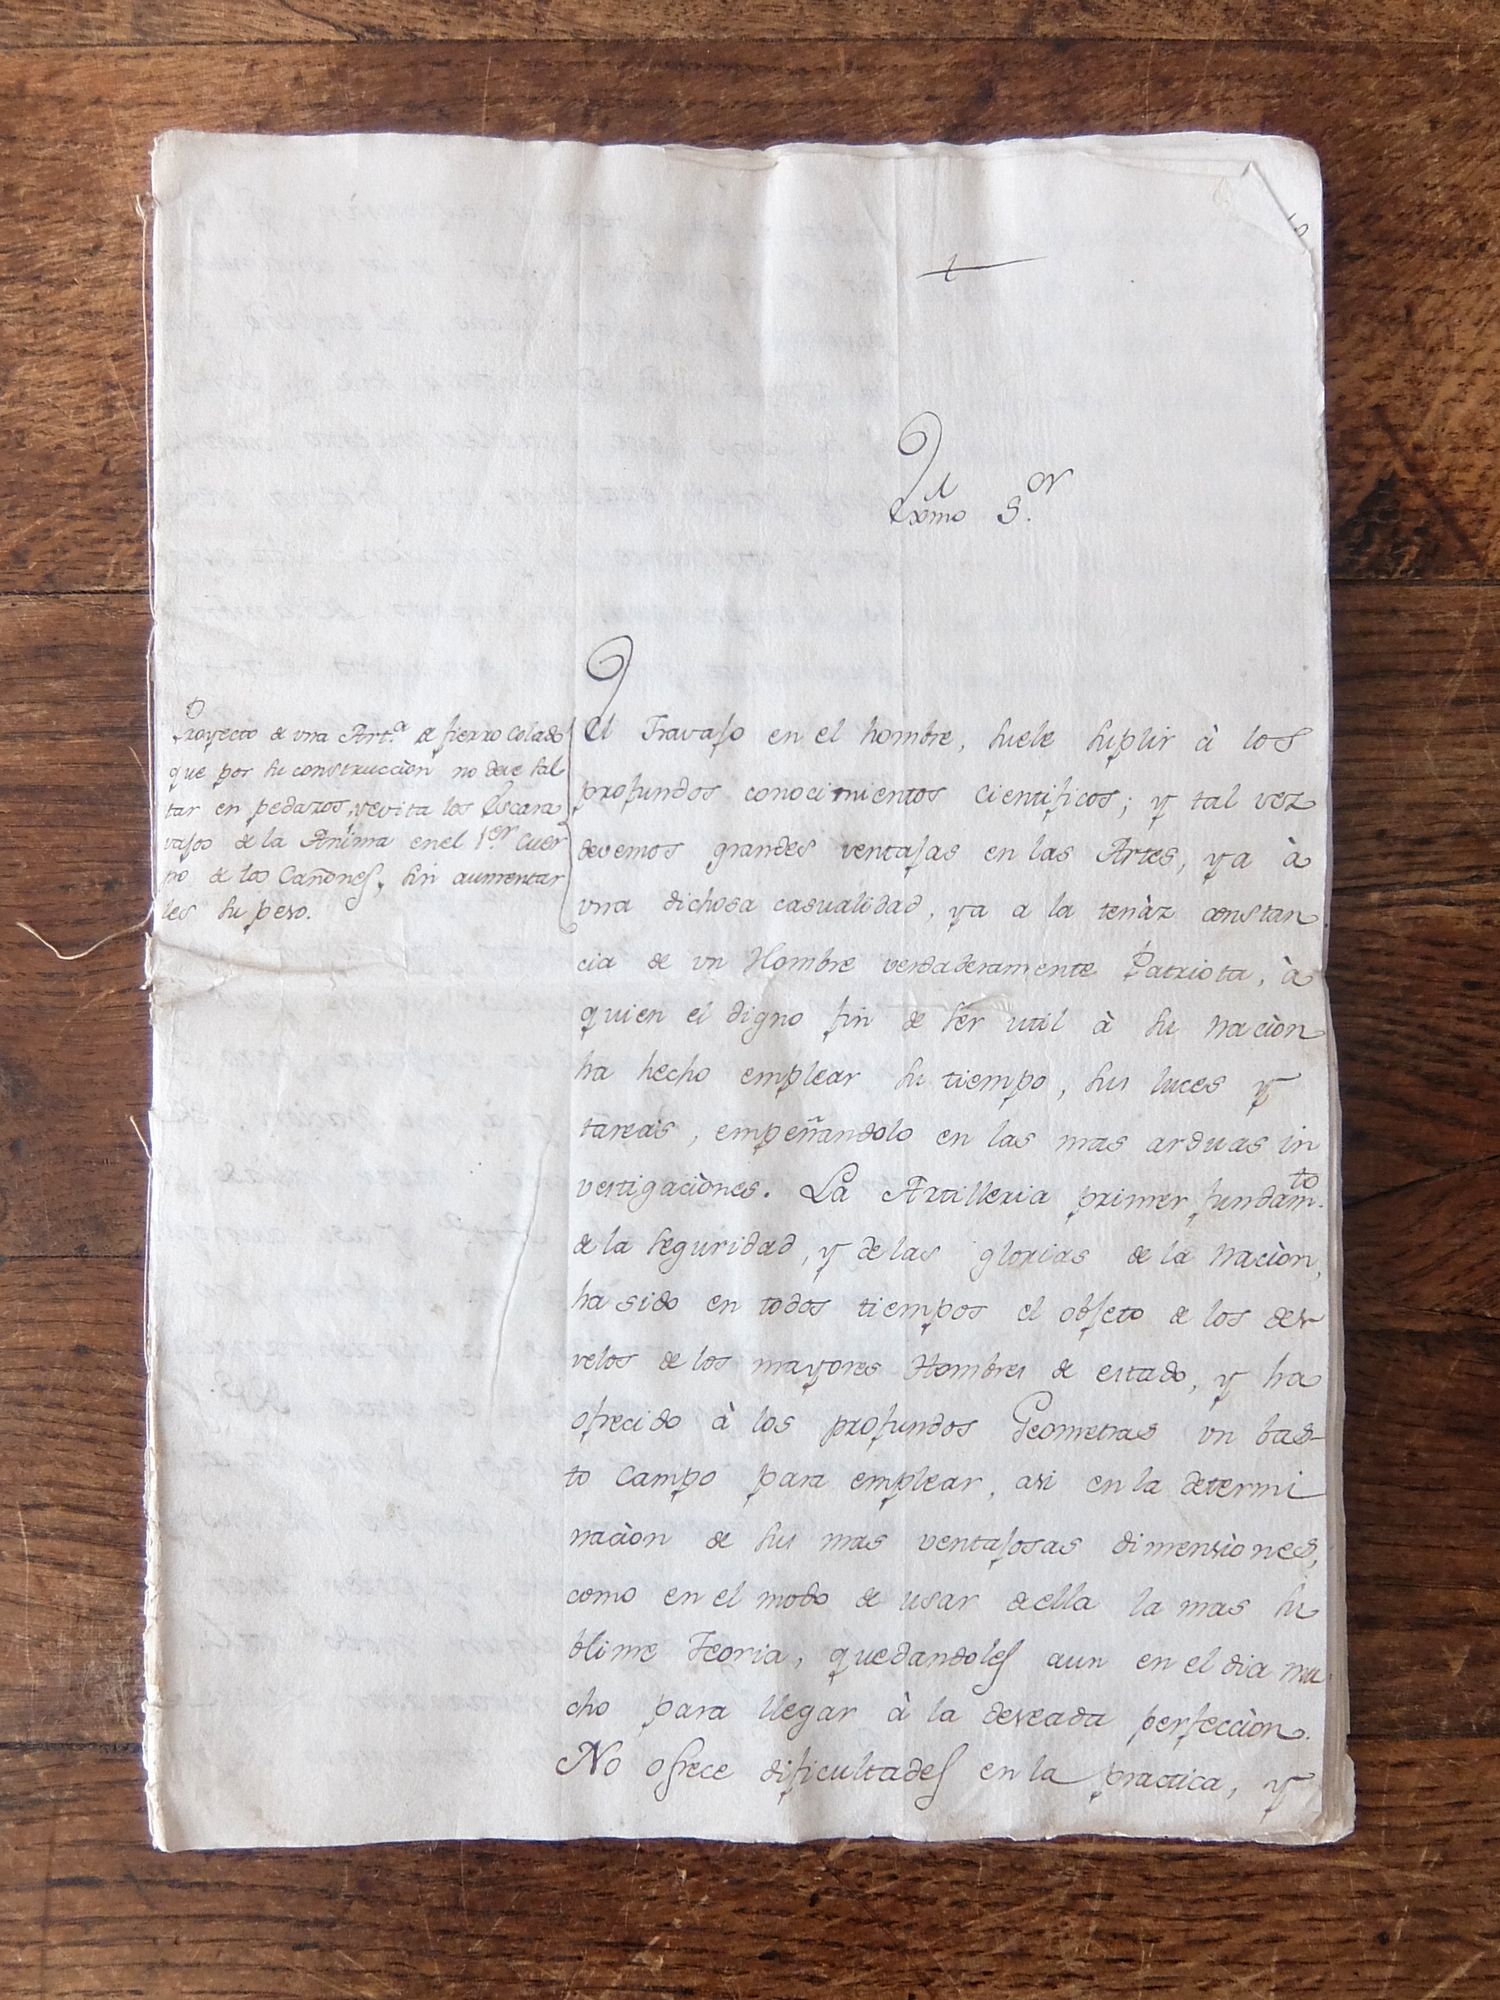 Exmo S.or
Proyecto de vna Art.a de fierro colado
que por su construcciòn no deve sal
tar en pedazos, y evita los Escara
vajos de la Anima en el 1.er Cuer
po de los Cañones, sin aumentar
les su peso.
El Travajo en el hombre, suele suplir à los
profundos conocimientos cientificos; y tal vez
devemos grandes ventajas en las Artes, ya à
vna dichosa casualidad, ya a la tenàz constan
cia de vn Hombre verdaderamente Patriota, à
quien el digno fin de ser util à su nacion
ha hecho emplear su tiempo, sus luces y
tareas, empeñandolo en las mas arduas in
vestigaciònes. La Artilleria primer fundam.to
de la seguridad, y de las glorias de la naciòn,
ha sido en todos tiempos el objeto de los des
velos de los mayores Hombres de estado, y ha
ofrecido à los profundos Geometras vn bas-
to campo para emplear, asi en la determi
naciòn de sus mas ventajosas dimensiones,
como en el modo de usar de ella la mas su
blime Teoria, quedandoles aun en el dia mu
cho para llegar à la deseada perfecciòn.
No ofrece dificultades en la practica, y